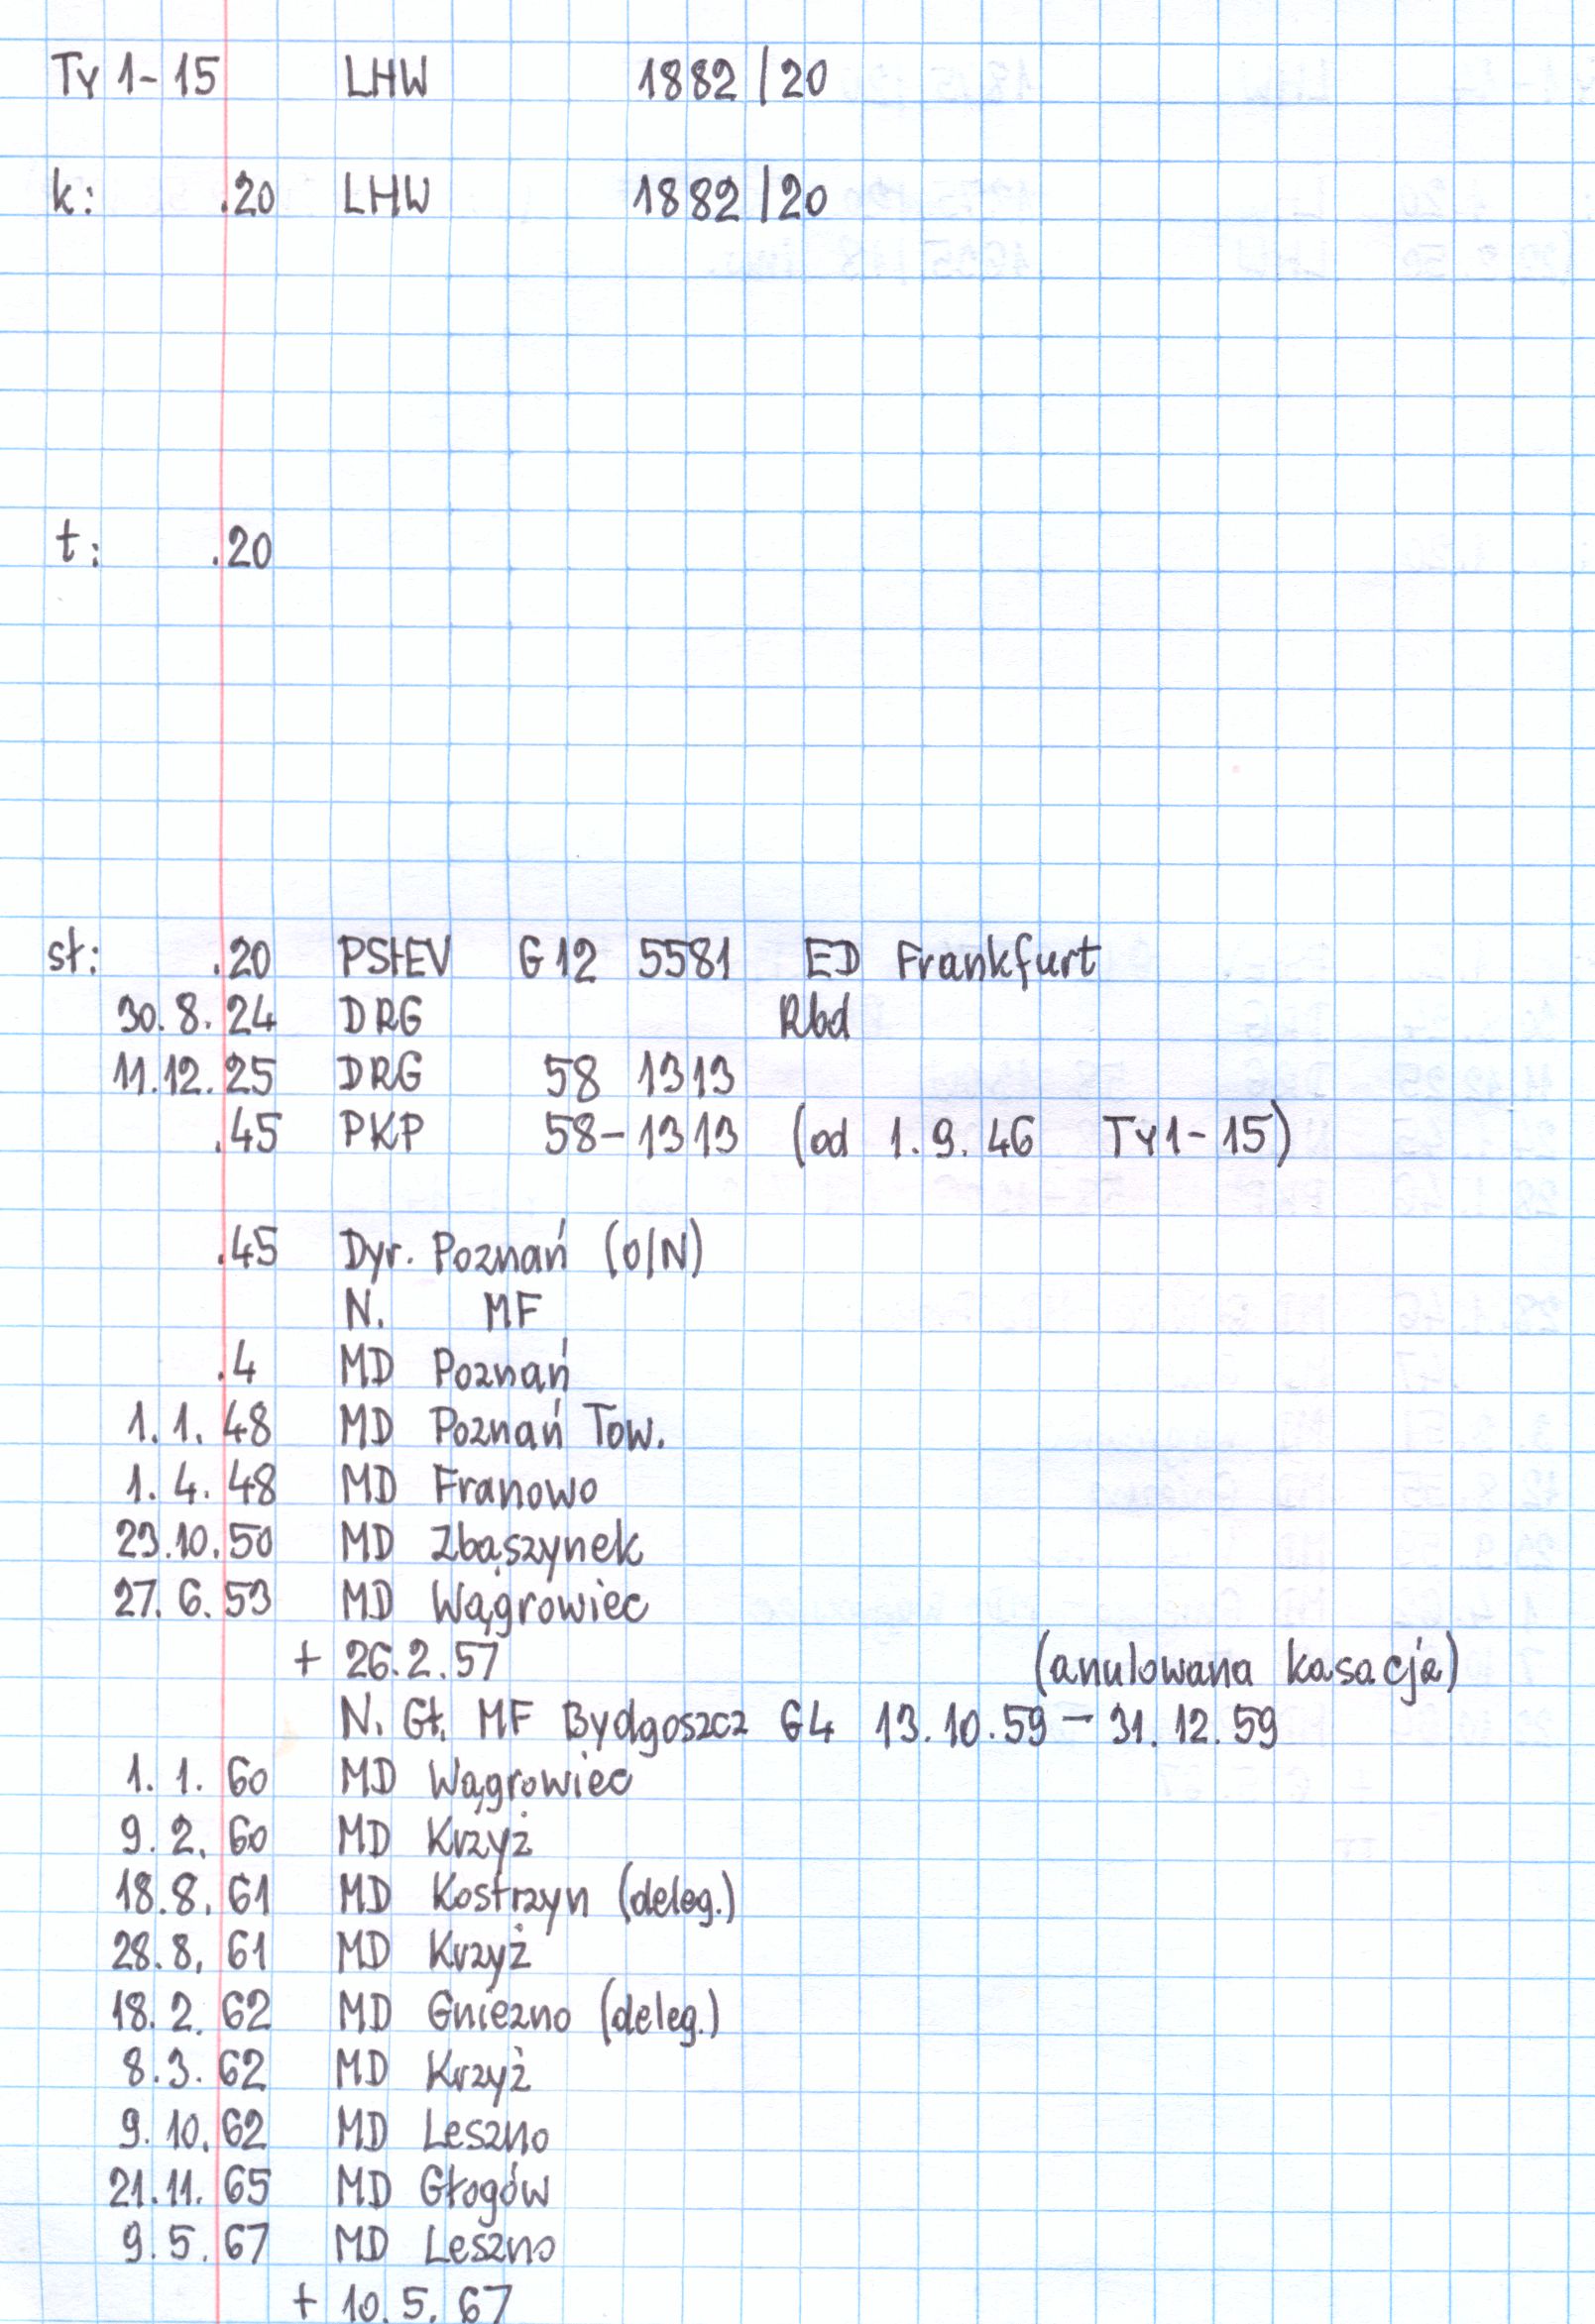 Ty 1-15 LHW 1882/20
k: .20 LHW 1882/20
t: .20
st: .20 PStEV G12 5581 ED Frankfurt
30.8.24 DRG Rbd
11.12.25 DRG 58 1313
.45 PKP 58-1313 (od 1.9.46 Ty1-15)
.45 Dyr. Poznań (O/N)
N. MF
.4 MD Poznań
1.1.48 MD Poznań Tow.
1.4.48 MD Franowo
23.10.50 MD Zbąszynek
27.6.53 MD Wągrowiec
+ 26.2.57 (anulowana kasacja)
N. Gł. MF Bydgoszcz G4 13.10.59 - 31.12.59
1.1.60 MD Wągrowiec
9.2.60 MD Krzyż
18.8.61 MD Kostrzyn (deleg.)
28.8.61 MD Krzyż
18.2.62 MD Gniezno (deleg.)
8.3.62 MD Krzyż
9.10.62 MD Leszno
21.11.65 MD Głogów
9.5.67 MD Leszno
+ 10.5.67